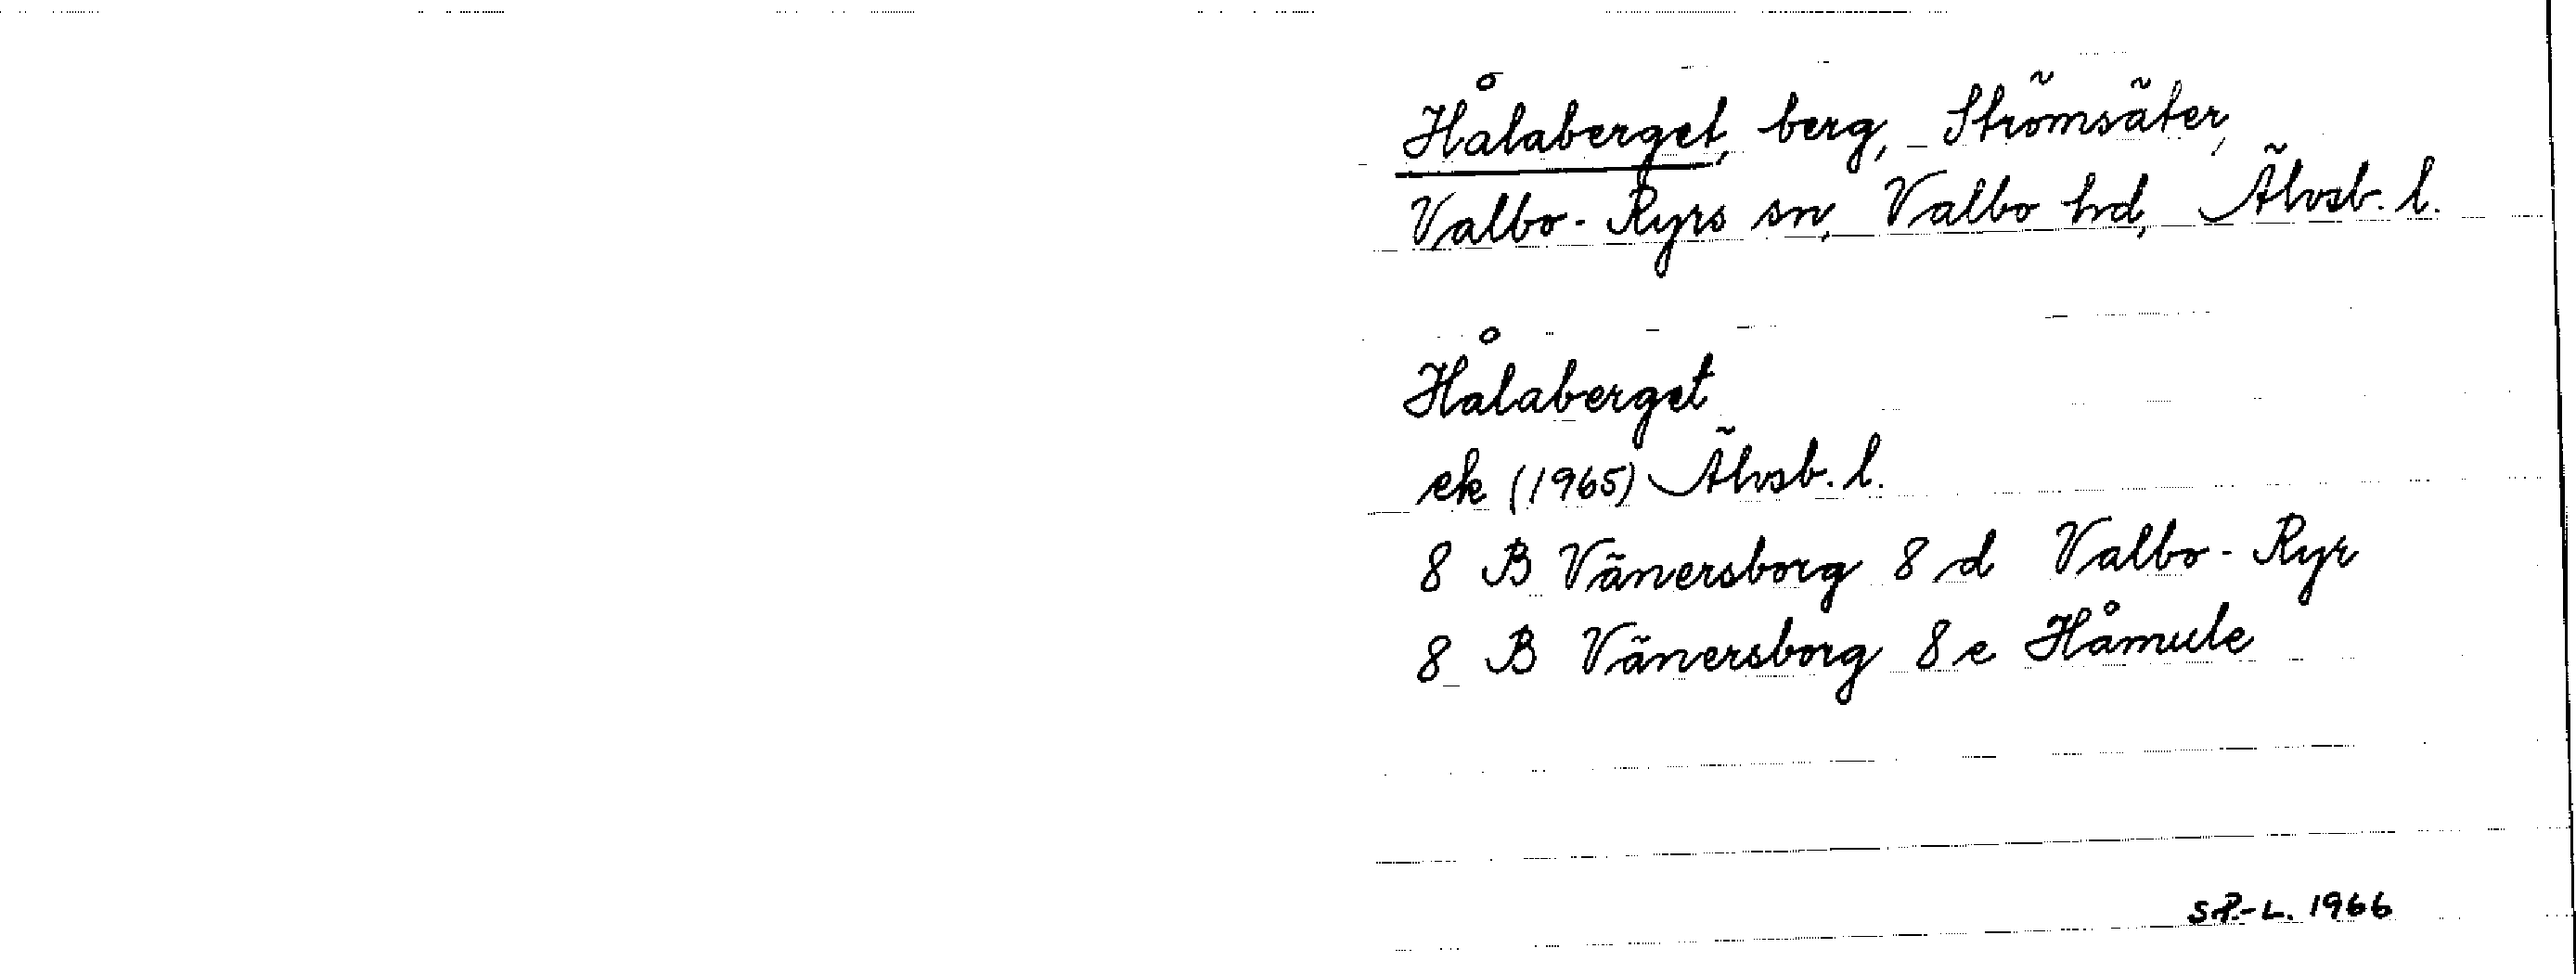 Hålaberget, berg, Strömsäter,
Valbo-Ryrs sn, Valbo hd, Älvsb. l.
Hålaberget
ek (1965) Älvsb. l.
8 B Vänersborg 8 d Valbo-Ryr
8 B Vänersborg 8 e Håmule
S.P.-L. 1966